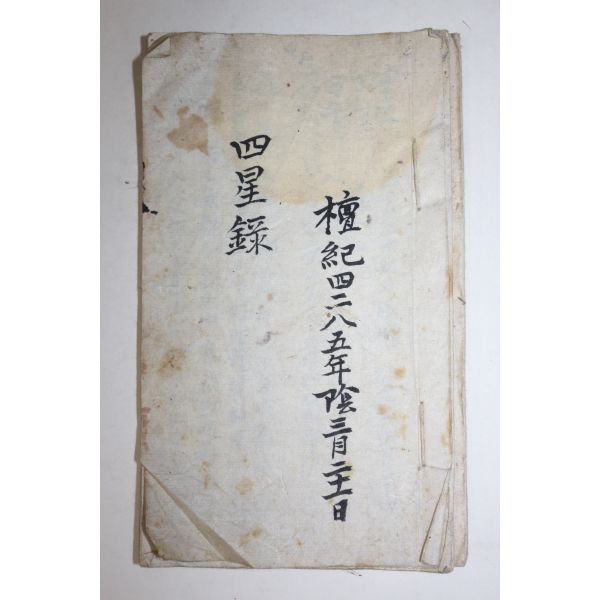 檀紀四二八五年陰三月二十一日
四星録